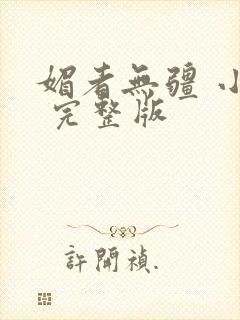 媚者無疆 小
完整版
許開禎.